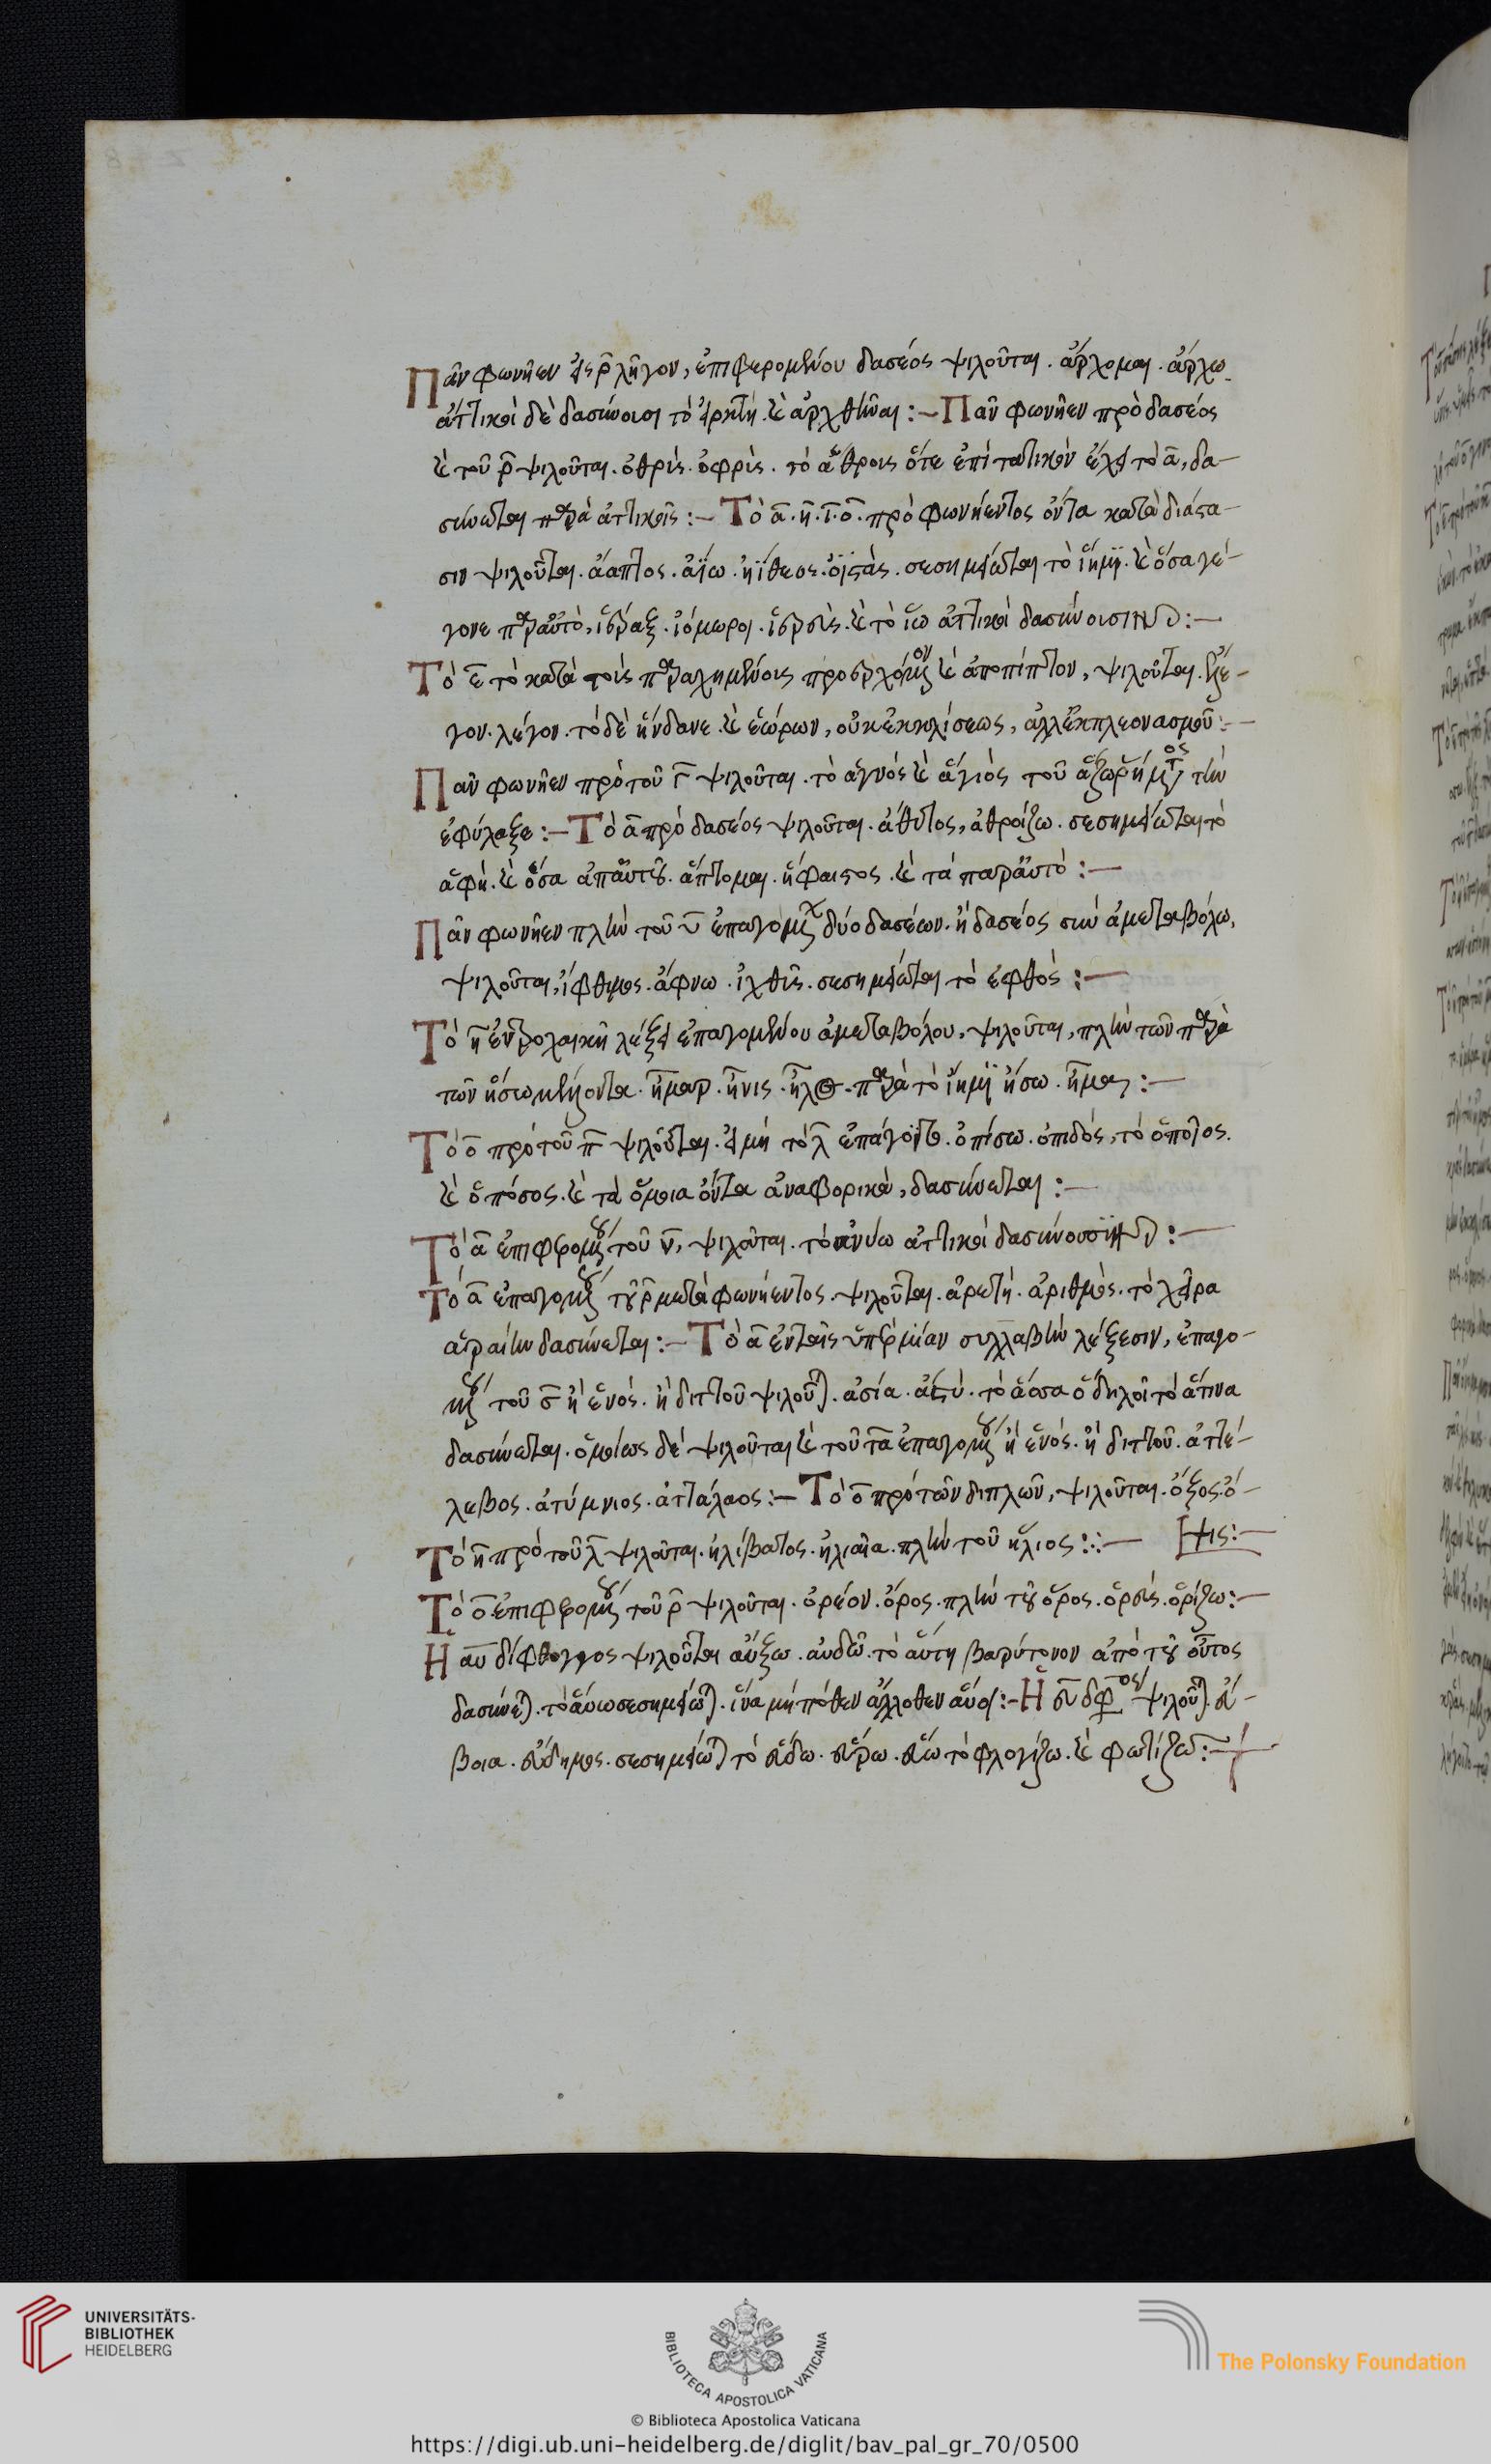 Πᾶν φωνῆεν εἰς ρ̄ λῆγον, ἐπιφερομένου δασέος ψιλοῦται. ἄρχομαι. ἄρχω.
ἀττικοὶ δὲ δασύνουσι τὸ εἱρκτὴ. καὶ ἀρχθῆναι :– Πᾶν φωνῆεν πρὸ δασέος
καὶ τοῦ ρ̄ ψιλοῦται. ὀθρὶς. ὀφρὶς. τὸ ἅθροις ὅτε ἐπιτατικὸν ἔχει τὸ ᾱ, δα–
σύνεται παρὰ ἀττικοῖς :– Τὸ ᾱ. η̄. ῑ. ο̄. πρὸ φωνήεντος ὄντα κατὰ διάστα–
σιν ψιλοῦται. ἄαπτος. ἀΐω. ἠΐθεος. ὀϊστὸς. σεσημείωται τὸ ἵημι. καὶ ὅσα γέ–
γονε παρ' αὐτὸ, ἱέραξ. ἰόμωροι. ἱερεὺς. καὶ τὸ ἵω ἀττικοὶ δασύνουσιν :–
Τὸ ε̄ τὸ κατὰ τοὺς παρῳχημένους προσερχόμενον καὶ ἀποπίπτον, ψιλοῦται. ἔλε–
γον. λέγον. τὸ δὲ ἥνδανε. καὶ ἑώρων, οὐκ ἐκ κλίσεως, ἀλλ' ἐκ πλεονασμοῦ :–
Πᾶν φωνῆεν πρὸ τοῦ γ̄ ψιλοῦται. τὸ ἁγνός καὶ ἅγιος τοῦ ἅζω ῥήματος τὴν
ἐφύλαξε :– Τὸ ᾱ πρὸ δασέος ψιλοῦται. ἄθυτος, ἀθροίζω. σεσημείωται τὸ
ἁφὴ. καὶ ὅσα ἀπ' αὐτῆς. ἅπτομαι. ἥφαιστος. καὶ τὰ παρ' αὐτὸ :–
Πᾶν φωνῆεν πλὴν τοῦ ῡ ἐπαγομένων δύο δασέων. ἢ δασέος σὺν ἀμεταβόλω,
ψιλοῦται, ἴφθιμος. ἄφνω. ἰχθῦς. σεσημείωται τὸ ἑφθός :–
Τὸ η̄ ἐν τροχαϊκῆ λέξει ἐπαγομένου ἀμεταβόλου, ψιλοῦται, πλὴν τῶν παρὰ
τὸ ἵημι ἥσω. ἧμαι :–
Τὸ ο̄ πρὸ τοῦ π̄ ψιλοῦται. εἰ μὴ τὸ λ̄ ἐπάγοιτο. ὀπίσω. ὀπιδός, τὸ ὁποῖος.
καὶ ὁπόσος. καὶ τὰ ὅμοια ὄντα ἀναφορικὰ, δασύνεται :–
Τὸ ᾱ ἐπιφερομένου τοῦ ν̄, ψιλοῦται. τὸ ἀνύω ἀττικοὶ δασύνουσιν :–
Τὸ ᾱ ἐπαγομένου τοῦ ρ̄ μετὰ φωνήεντος. ψιλοῦται. ἀρετή. ἀριθμός. τὸ χεῖρα
ἁραιὴν δασύνεται :– Τὸ ᾱ ἐν ταῖς ὑπὲρ μίαν συλλαβὴν λέξεσιν, ἐπαγο–
μένου τοῦ σ̄ ἢ ἑνός. ἢ διττοῦ ψιλοῦται. ἀσία. ἄστυ. τὸ ἅσσα ὃ δηλοῖ τὸ ἅτινα
δασύνεται. ὁμοίως δὲ ψιλοῦται καὶ τοῦ τ̄ ἐπαγομένου ἢ ἑνός. ἢ διττοῦ. ἀττέ–
λεβος. ἀτύμνιος. ἀττάλαος :– Τὸ ο̄ πρὸ τῶν διπλῶν, ψιλοῦται. ὄξος. ὄ–
Τὸ η̄ πρὸ τοῦ λ̄ ψιλοῦται. ἠλίβατος. ἠλιαία. πλὴν τοῦ ἥλιος :– [ψις :–
Τὸ ο̄ ἐπιφερομένου τοῦ ρ̄ ψιλοῦται. ὀρέον. ὄρος. πλὴν τοῦ ὅρος. ὁρίζω :–
Ἡ αῡ δίφθογγος ψιλοῦται αὔξω. αὐδῶ. τὸ αὕτη βαρύτονον ἀπὸ τοῦ οὗτος
δασύνεται. τὸ αὕω σεσημείωται. ἵνα μή ποθεν ἄλλοθεν αὕοι :– Ἡ εῡ δίφθογγος ψιλοῦται. εὔ–
βοια. εὔδημος. σεσημείωται τὸ εὕδω. εὕρω. εὕω τὸ φλογίζω. καὶ φωτίζω :–
UNIVERSITÄTS-
BIBLIOTHEK
HEIDELBERG
BIBLIOTECA APOSTOLICA VATICANA
The Polonsky Foundation
© Biblioteca Apostolica Vaticana
https://digi.ub.uni-heidelberg.de/diglit/bav_pal_gr_70/0500